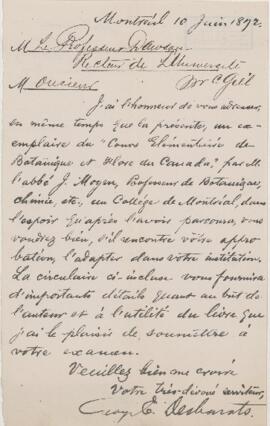 Montréal 10 Juin 1892.
M. Le Professeur
Recteur de L'Université
McGill
Monsieur
J'ai l'honneur de vous adresser,
en même temps que la présente, un ex-
emplaire du "Cours Elémentaire de
Botanique et Flore du Canada," par M.
l'abbé J. Moyen, Professeur de Botanique,
chimie, etc., au Collège de Montréal, dans
l'espoir qu'après l'avoir parcouru, vous
voudrez bien, s'il rencontre votre appro-
bation, l'adopter dans votre institution.
La circulaire ci-incluse vous fournira
d'importants détails quant au but de
l'auteur et à l'utilité du livre que
j'ai le plaisir de soumettre à
votre examen.
Veuillez bien me croire
Votre très-dévoué serviteur,
Geo. E. Desbarats.